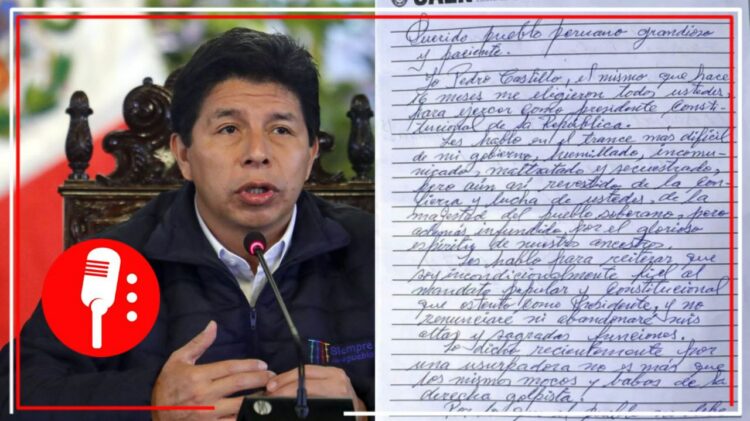 CAEN
Querido pueblo peruano grandioso
y paciente.
Yo Pedro Castillo, el mismo que hace
16 meses me eligieron todos ustedes,
para ejercer como presidente Consti-
tucional de la República.
Les hablo en el trance más difícil
de mi gobierno, humillado, incomu-
nicado, maltratado y secuestrado,
pero aún así revestido de la con-
fianza y lucha de ustedes, de la
majestad del pueblo soberano, pero
además infundido por el glorioso
espíritu de nuestros ancestros.
Les hablo para reiterar que
soy incondicionalmente fiel al
mandato popular y Constitucional
que ostento como Presidente, y no
renunciaré ni abandonaré mis
altas y sagradas funciones.
Lo dicho recientemente por
una usurpadora no es más que
los mismos mocos y babas de la
derecha golpista.
Siempre
pueblo